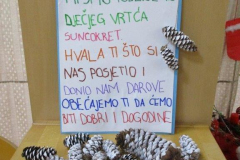 DJEČJEG VRTIĆA
SUNCOKRET
HVALA TI ŠTO SI
NAS POSJETIO I
DONIO NAM DAROVE
OBEĆAJEMO TI DA ĆEMO
BITI DOBRI I DOGODINE